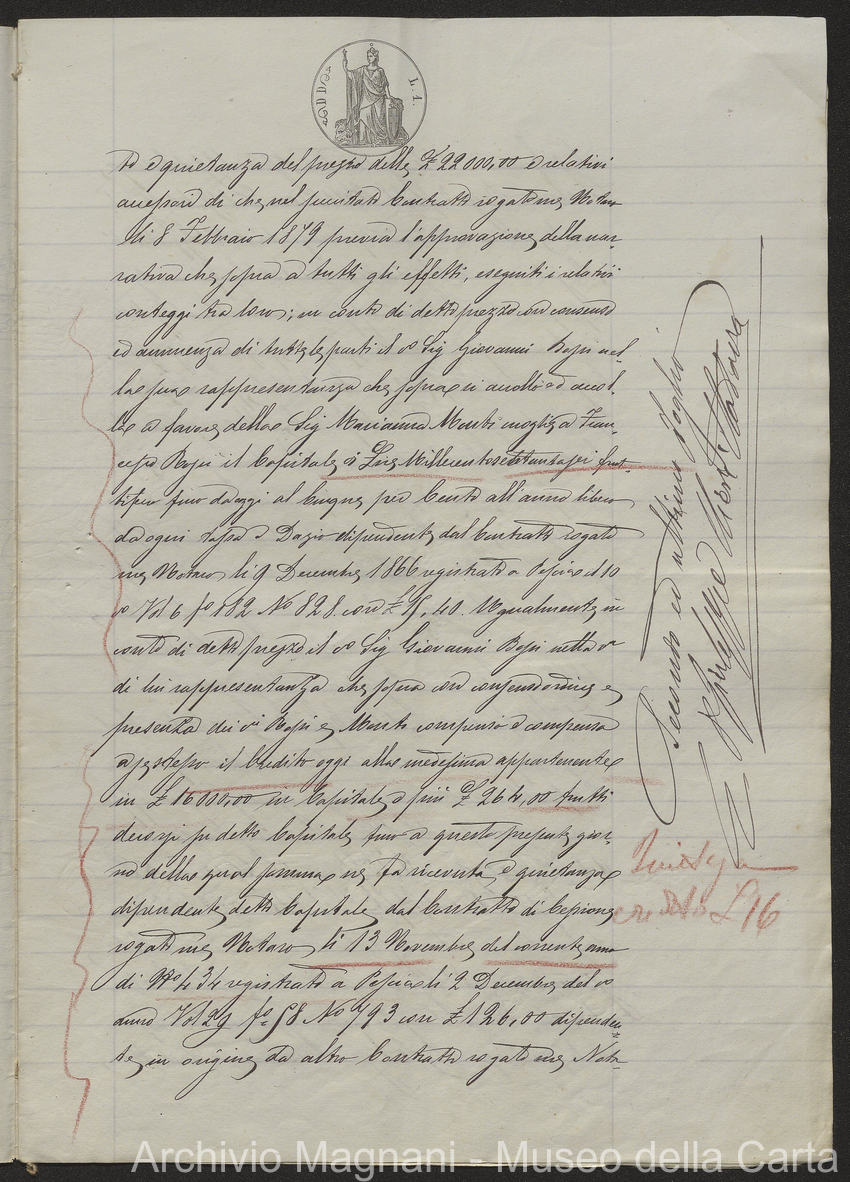 L. 1.
to e quietanza del prezzo delle £ 22000,00 e relativi
accessori di che nel succitato Contratto rogato me Notaro
li 8 Febbraio 1879 previa l'approvazione della nar
rativa che sopra a tutti gli effetti, eseguiti i relativi
conteggi tra loro; in conto di detto prezzo con consenso
ed annuenza di tutte le parti il Sig Giovanni nel
la sua rappresentanza che sopra si accollò ed accol
la a favore della Sig Marianna Monti moglie a Fran
cesco il Capitale di Lire Millecentosettantasei frut
tifero fino da oggi al Cinque per Cento all'anno libero
da ogni tassa e Dazio dipendente dal Contratto rogato
me Notaro li 9 Decembre 1866 registrato a Pescia il 10
Vol 6 fo 112 No 828 con £ 40. Ugualmente in
conto di detto prezzo il Sig Giovanni nella
di lui rappresentanza che sopra con consenso e
presenza dei e Monti compensò e compensa
a se stesso il Credito oggi alla medesima appartenente
in £ 16000,00 in Capitale e più £ 264,00 frutti
decorsi su detto Capitale fino a questo presente gior
no della qual somma ne fa ricevuta e quietanza
dipendente detto Capitale dal Contratto di Cessione
rogato me Notaro li 13 Novembre del corrente anno
di No 434 registrato a Pescia li 2 Decembre del
anno Vol 29 fo 58 No 793 con £ 126,00 dipenden
te in origine da altro Contratto rogato me Nota
Secondo ed ultimo foglio
credito £ 16
Archivio Magnani - Museo della Carta